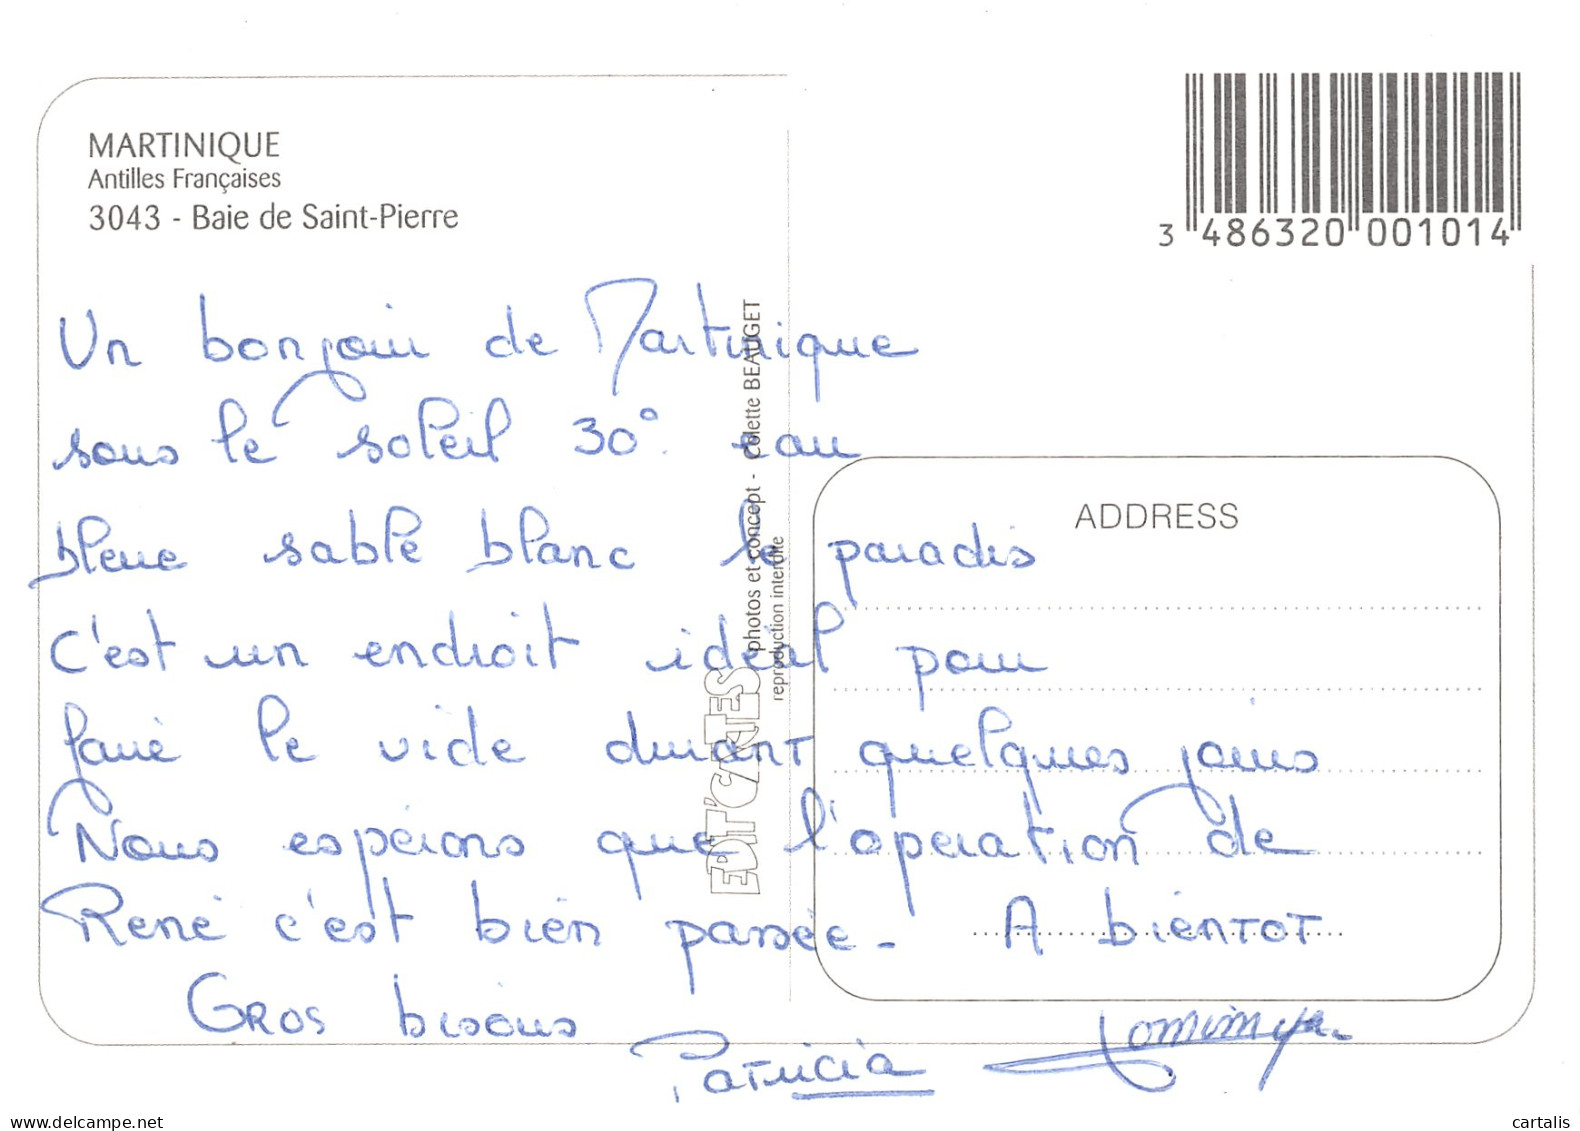 MARTINIQUE
Antilles Françaises
3043 - Baie de Saint-Pierre
3 486320 001014
Un bonjour de Martinique
sous le soleil 30° eau
bleue sable blanc le paradis
C'est un endroit idéal pour
faire le vide durant quelques jours
Nous espérons que l'opération de
René c'est bien passée - A bientot
Gros bisous
Patricia Dominique
ADDRESS
EDIT'CARTES photos et concept - Colette BEAUGET
reproduction interdite
www.delcampe.net
cartalis